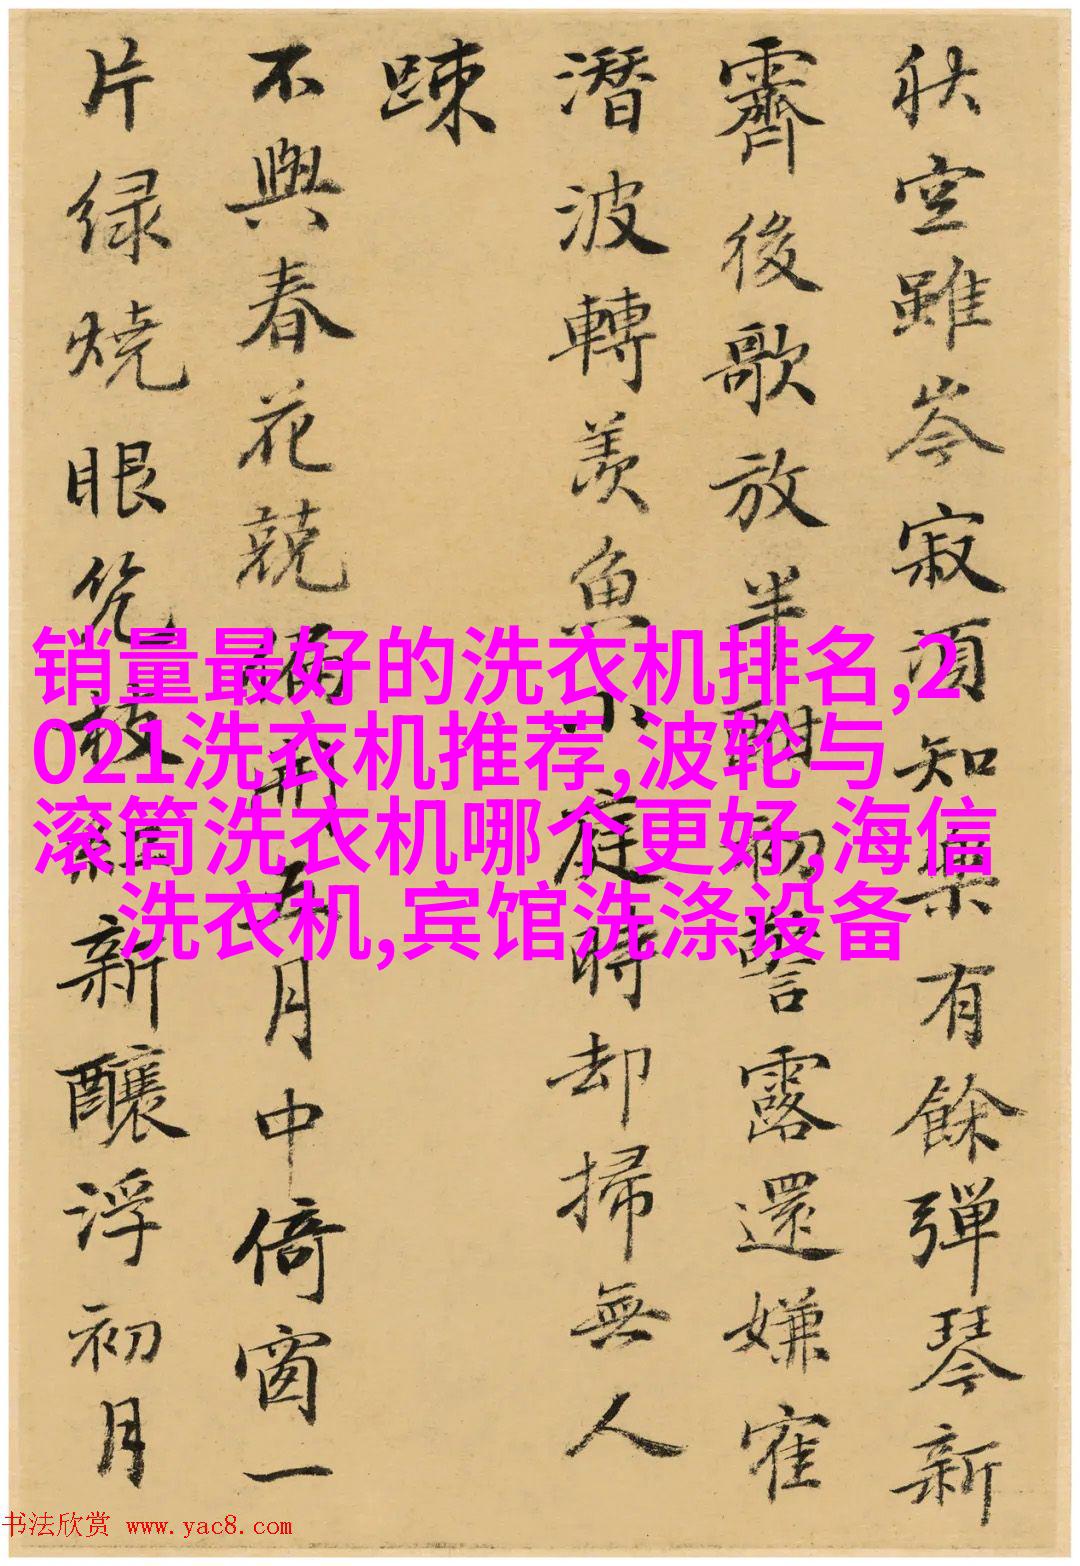 秋空雖岑寂須知樂有餘彈琴新
霽後歌放半酣初警露還嫌寉
潛波轉羨魚小庭時却掃無人
踈
不與春花競偏開五月中倚窗一
片绿燒眼
新釀浮初月
销量最好的洗衣机排名,2
021洗衣机推荐,波轮与
滚筒洗衣机哪个更好,海信
洗衣机,宾馆洗涤设备
书法欣赏 www.yac8.com